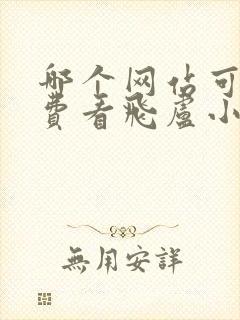 哪个网站可
费看飛盧小
無用安詳